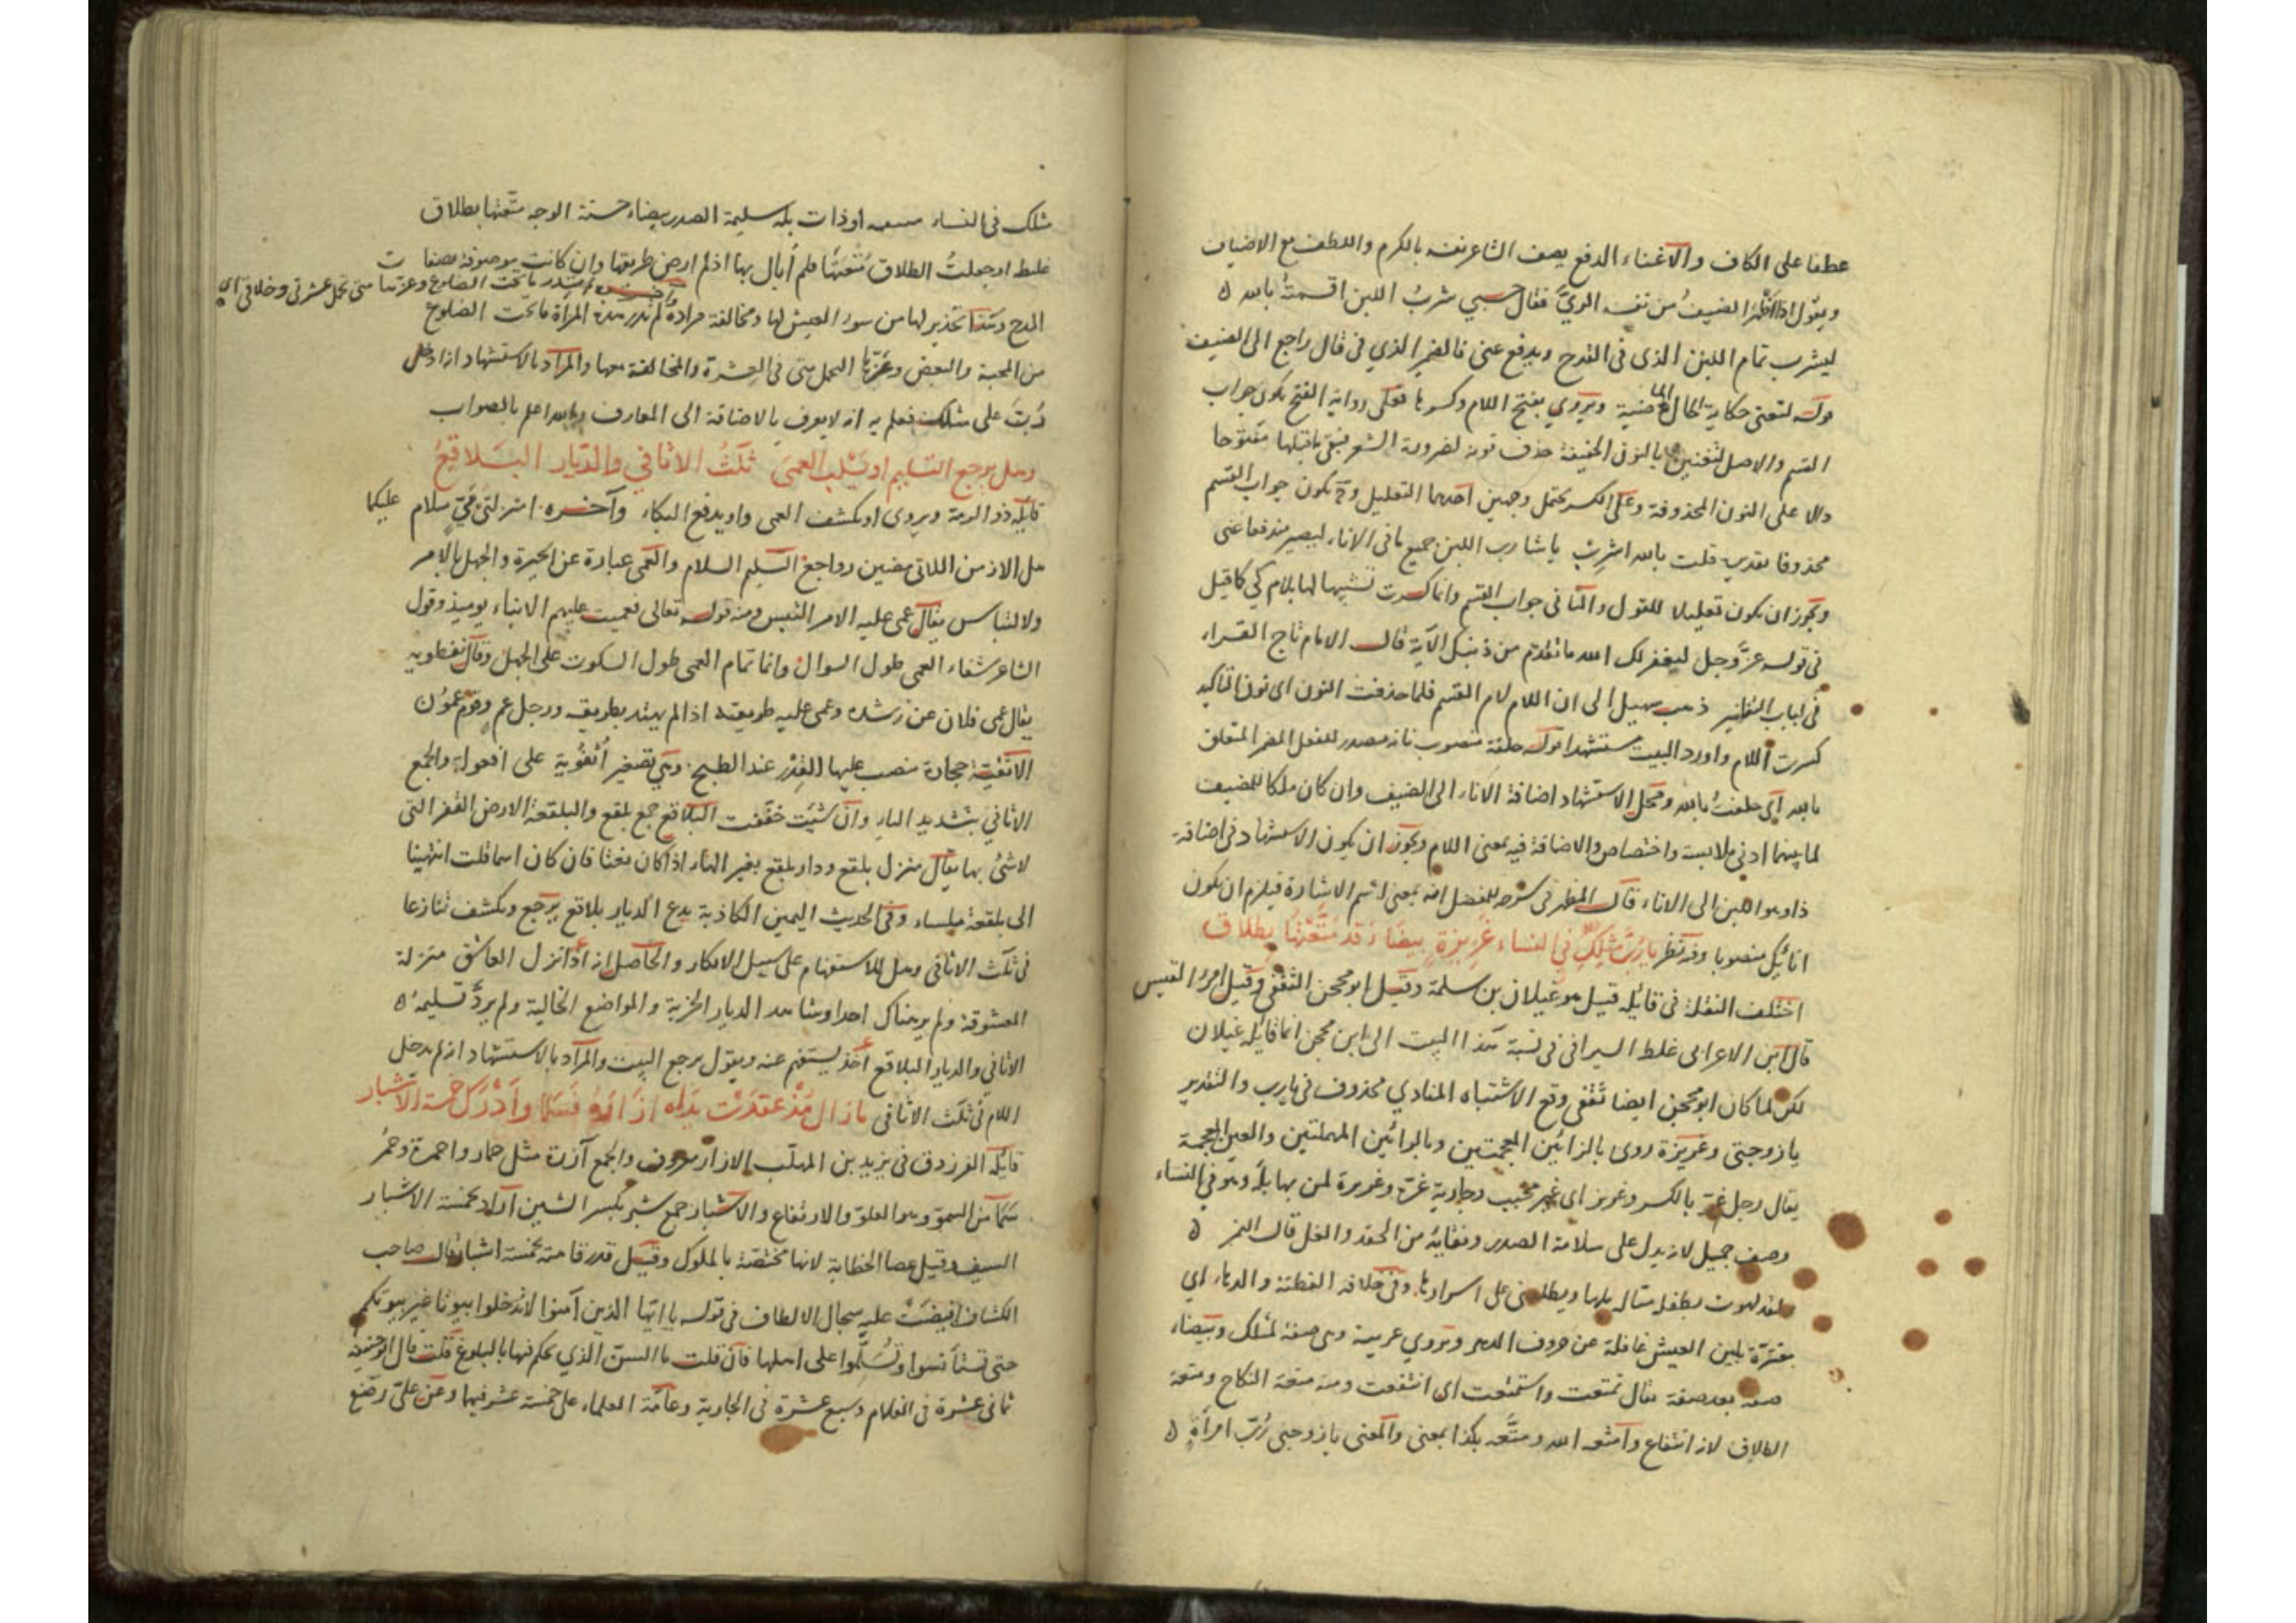 عطفا على الكاف والاغناء الدفع يصف الشاعر نفسه بالكرم واللطف مع الاضياف
ويقول اذا اظهر الضيف من نفسه الريّ فقال حسبي شرب اللبن اقسمت بالله
ليشرب تمام اللبن الذى فى القدح ويدفع عنى فالضمير الذي في قال راجع الى الضيف
قوله لتغنى حكاية الحال الماضية ويروي بفتح اللام وكسرها فعلى رواية الفتح يكون جواب
القسم والاصل لتغنين بالنون الخفيفة حذف نونه لضرورة الشعر فبقي ما قبلها مفتوحا
دالا على النون المحذوفة وعلى الكسر يحتمل وجهين احدهما التعليل وح يكون جواب القسم
محذوفا تقديره قلت بالله اشربن يا شارب اللبن جميع ما فى الاناء ليصير مندفعا عنى
ويجوز ان يكون تعليلا للقول والثانى جواب القسم وانما كسرت تشبيها لها بلام كي كما قيل
فى قوله عزّ وجل ليغفر لك الله ما تقدم من ذنبك الآية قال الامام تاج القراء
فى لباب التفاسير ذهب سهيل الى ان اللام لام القسم فلما حذفت النون اى نون التاكيد
كسرت اللام واورد البيت مستشهدا قوله حلفة منصوب بانه مصدر للفعل المضمر المتعلق
بالله اى حلفت بالله ومحل الاستشهاد اضافة الاناء الى الضيف وان كان ملكا للمضيف
لما بينهما ادنى ملابسة واختصاص والاضافة فيه بمعنى اللام ويجوز ان يكون الاستشهاد فى اضافة
ذا وهو اللبن الى الاناء قال المظهر فى شرحه للمفصل انه بمعنى اسم الاشارة فيلزم ان يكون
انائك منصوبا وفيه نظر يا رُبَّ مثلِكِ في النساء غريرةٍ بيضاءَ قد متّعتُها بطلاق
اختلف النقلة فى قائله قيل هو غيلان بن سلمة وقيل ابو محجن الثقفي وقيل امرؤ القيس
قال ابن الاعرابى غلط السيرافى فى نسبة هذا البيت الى ابن محجن انما قائله غيلان
لكن لما كان ابو محجن ايضا ثقفى وقع الاشتباه المنادي محذوف فى يا رب والتقدير
يا زوجتى وغريرة روى بالزائين المعجمتين وبالرائين المهملتين والعين المعجمة
يقال رجل غرّ بالكسر وغرير اى غير مجرّب وجارية غرة وغريرة لمن بها بله وهو في النساء
وصف جميل لانه يدل على سلامة الصدر ونقايه من الحقد والغل قال النمر
ولقد لهوت بطفلة ميّالة بلهاء تطلعنى على اسرارها وفى خلافه الفطنة والدهاء اي
مغترّة بلين العيش غافلة عن صروف الدهر ويروي غريبة وهى صفة لمثلك وبيضاء
صفة بعد صفة يقال تمتعت واستمتعت اى انتفعت ومنه متعة النكاح ومتعة
الطلاق لانه انتفاع وامتعه الله ومتّعه بكذا بمعنى والمعنى يا زوجتى رُبّ امرأةٍ
مثلك فى النساء او ذات بله سليمة الصدر بيضاء حسنة الوجه متّعتها بطلاق
غليظ او جعلت الطلاق متعتَها فلم أبال بها اذ لم ارض طريقها وان كانت موصوفة بصفات
المدح وهذا تحذير لها من سوء العيش لها ومخالفة مراده لم تدر هذه المرأة ما تحت الضلوع
من المحبة والبغض وغرّها التحمل منى فى العشرة والمخالفة معها والمراد بالاستشهاد انه ادخل
رُبّ على مثلك فعلم به انه لا يعرف بالاضافة الى المعارف والله اعلم بالصواب
وهل يرجع التسليم او يكشف العمى ثلثُ الاثافي والديار البلاقعُ
قائله ذو الرمة ويروى او يكشف العمى واو يدفع البكاء وآخره امنزلتَي مَيّ سلام عليكما
هل الازمن اللاتى مضين رواجع التسليم السلام والعمى عبارة عن الحيرة والجهل بالامر
والالتباس يقال عمى عليه الامر التبس ومنه قوله تعالى فعميت عليهم الانباء يومئذ وقول
الشاعر شفاء العمى طول السوال وانما تمام العمى طول السكوت على الجهل وقال نفطويه
يقال عمى فلان عن رشده وعمى عليه طريقته اذا لم يهتد بطريقه ورجل عم وقوم عمون
الاثفية حجارة ينصب عليها القدر عند الطبخ وهي تصغير أثفوية على افعولة والجمع
الاثافي بتشديد الياء وان شئت خففت البلاقع جمع بلقع والبلقعة الارض القفر التى
لا شئ بها يقال منزل بلقع ودار بلقع بغير الهاء اذا كان نعتا فان كان اسما قلت انتهينا
الى بلقعة ملساء وفى الحديث اليمين الكاذبة يدع الديار بلاقع يرجع ويكشف تنازعا
فى ثلث الاثافى وهل للاستفهام على سبيل الانكار والحاصل انه اذا نزل العاشق منزلة
المعشوقة ولم ير هناك احدا وشاهد الديار الخربة والمواضع الخالية ولم يردّ تسليمه
الاثافي والديار البلاقع اخذ يستفهم عنه ويقول يرجع البيت والمراد بالاستشهاد انه لم يدخل
اللام فى ثلث الاثافى ما زال مُذْ عقدَتْ يداه ازارهُ فسما وأدرك خمسة الاشبار
قائله الفرزدق فى يزيد بن المهلّب الازار معروف والجمع آزرة مثل حمار واحمرة وحمر
سما من السموّ وهو العلوّ والارتفاع والاشبار جمع شبر بكسر الشين اراد بخمسة الاشبار
السيف وقيل عصا الخطابة لانها مختصّة بالملوك وقيل قدر قامته بخمسة اشبار قال صاحب
الكشاف افيضت عليه سجال الالطاف فى قوله يا ايها الذين آمنوا لا تدخلوا بيوتا غير بيوتكم
حتى تستأنسوا وتسلّموا على اهلها فان قلت ما السنّ الذي يحكم فيها بالبلوغ قلت قال ابو حنيفة
ثمانى عشرة فى الغلام وسبع عشرة فى الجارية وعامّة العلماء على خمسة عشر فيهما وعن علىّ رضع